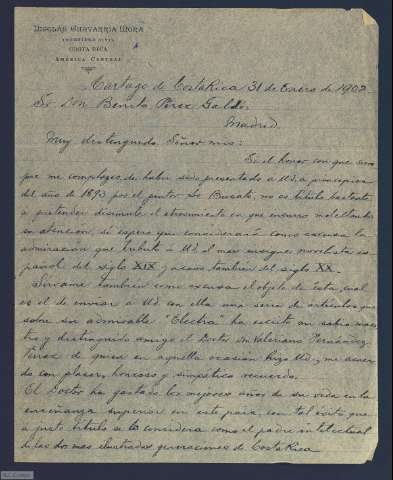 NICOLÁS CHAVARRÍA MORA
INGENIERO CIVIL
COSTA RICA
AMERICA CENTRAL
Cartago de Costa Rica 31 de Enero de 1902
Sr Don Benito Pérez Galdós
Madrid
Muy distinguido Señor mio:
Si el honor con que
que me complazco de haber sido presentado á Ud. á principios
del año de 1893 por el pintor Sr no es título bastante
á pretender disimule el atrevimiento en que incurro molestando
su atención, si espero que considerará como excusa la
admiración que tributo á Ud. el mas insigne novelista es-
pañol del siglo XIX y acaso también del siglo XX.
Sírvame también como excusa el objeto de ésta, cual
es el de enviar á Ud con ella una serie de artículos que
sobre su admirable "Electra" ha escrito un sabio maes-
tro y distinguido amigo el Doctor don Valeriano Fernández
Ferraz de quien en aquella ocasión hizo Ud., me acuer-
do con placer, honroso y simpático recuerdo.
El Doctor ha gastado los mejores años de su vida en la
enseñanza superior en este país, con tal éxito que
á justo título se le considera como el padre intelectual
de las dos mas ilustradas generaciones de Costa Rica